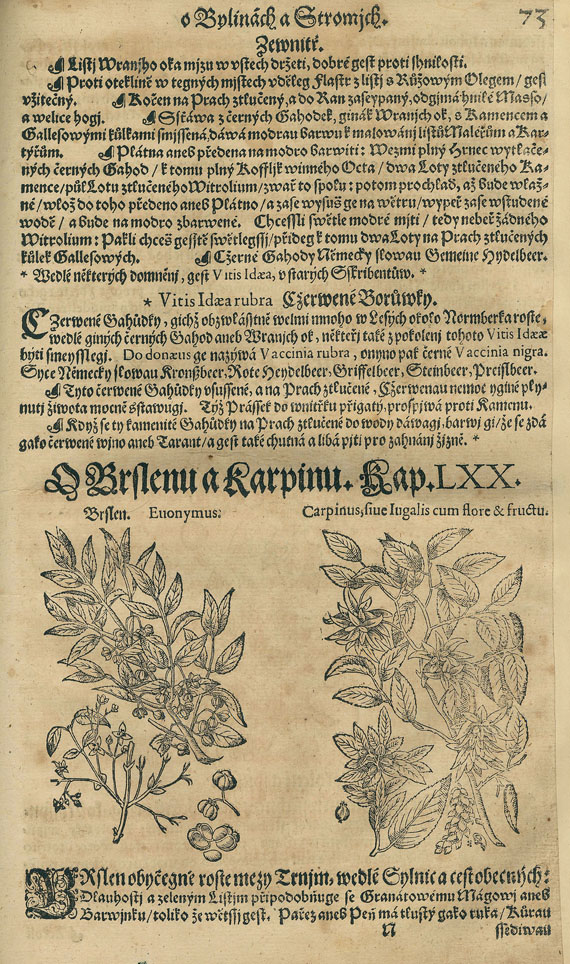 o Bylinách a Stromjch.
73
Zewnitř.
Listj Wranjho oka mjzu w vstech držeti, dobré gest proti shnilosti.
Proti oteklině w tegných mjstech vděleg Flastr z listj s Růžowým Olegem / gest
vžitečný. Kočen na Prach ztlučený, a do Ran zaseypaný, odgjmá hnilé Masso /
a welice hogj. Sstáwa z černých Gahodek, ginák Wranjch ok, s Kamencem a
Gallesowými kůlkami smjssená, dáwá modrau barwu k malowánj listů Malěřům a Kar-
týřům. Plátna aneb předena na modro barwiti: Wezmi plný Hrnec wytlače-
ných černých Gahod / k tomu plný Kofflík winného Octa / dwa Loty ztlučeného Ka-
mence / půl Lotu ztlučeného Witrolium / zwař to spolu: potom prochlaď, až bude wlaž-
né / wlož do toho předeno aneb Plátno / a zase wysuš ge na wětru / wypeř zase w studené
wodě / a bude na modro zbarwené. Chcessli swětle modré mjti / tedy neber žádného
Witrolium: Pakli chceš gesstě swětlegssj / přideg k tomu dwa Loty na Prach ztlučených
kůlek Gallesowých. Cžerné Gahody Německy slowau Gemeine Heydelbeer.
* Wedlé některých domněnj, gest Vitis Idæa, v starých Sskribentůw. *
* Vitis Idæa rubra Cžerwené Borůwky.
Cžerwené Gahůdky, gichž obzwlásstně welmi mnoho w Lesých okolo Normberka roste,
wedlé giných černých Gahod aneb Wranjch ok, někteřj také z pokolenj tohoto Vitis Idææ
býti smeysslegj. Dodonæus ge nazýwá Vaccinia rubra, onyno pak černé Vaccinia nigra.
Syce Německy slowau Kronßbeer, Rote Heydelbeer, Griffelbeer, Steinbeer, Preißlbeer.
Tyto čerwené Gahůdky vsussené, a na Prach ztlučené, Cžerwenau nemoc y giné ply-
nutj žiwota mocně sstawugj. Týž Prássek do wnitřku přigatý, prospjwá proti Kamenu.
Když se ty kamenité Gahůdky na Prach ztlučené do wody dáwagj, barwj gi / že se zdá
gako čerwené wjno aneb Tarant / a gest také chutná a libá pitj pro zahnánj žjzně. *
O Brslenu a Karpinu. Kap. LXX.
Brslen. Euonymus.
Carpinus, siue Iugalis cum flore & fructu.
BRslen obyčegně roste mezy Trnjm, wedlé Sylnic a cest obecných:
Dlauhostj a zeleným Listjm připodobňuge se Granátowému Mágowj aneb
Barwjnku / toliko že wětssj gest. Pařez aneb Peň má tlustý gako ruka / Kůrau
N
ssediwau